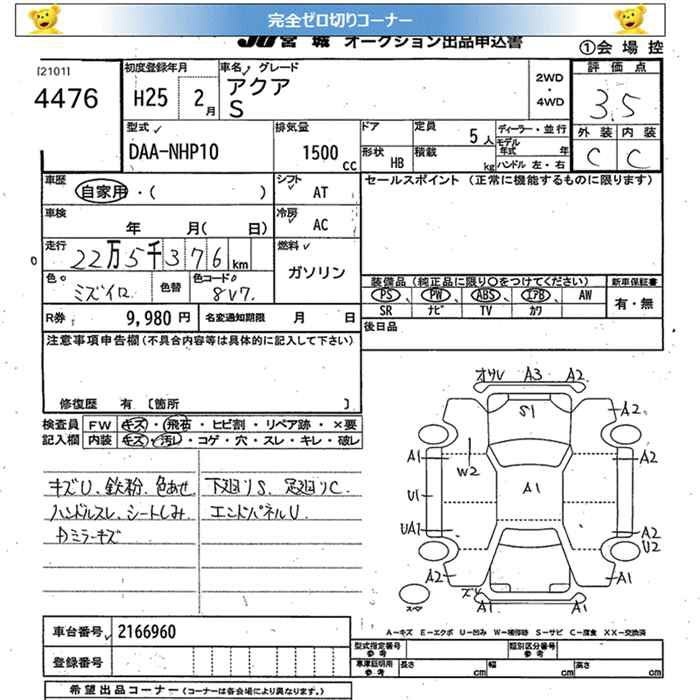 完全ゼロ切りコーナー
JU 宮城 オークション出品申込書
①会場控
[2101]
4476
初度登録年月
H25 2月
車名 グレード
アクア
S
2WD
・
4WD
評価点
3.5
外装 内装
C C
型式
DAA-NHP10
排気量
1500 cc
ドア
形状 HB
定員 5人
積載 kg
ディーラー・並行
モデル年式 年
ハンドル 左・右
車歴
自家用・( )
シフト AT
セールスポイント (正常に機能するものに限ります)
車検
年 月( 日)
冷房 AC
走行
22万5千376km
燃料
ガソリン
色
ミズイロ
色替
色コード
8V7.
装備品(純正品に限り○をつけてください)
新車保証書
PS PW ABS エアB AW
SR ナビ TV カワ
有・無
R券 9,980円
名変通知期限 月 日
後日品
注意事項申告欄(不具合内容等は具体的に記入して下さい)
修復歴 有 [箇所 ]
検査員 記入欄
FW キズ・飛石・ヒビ割・リペア跡・×要
内装 キズ・汚レ・コゲ・穴・スレ・キレ・破レ
キズU、鉄粉、色あせ
ハンドルスレ、シートしみ
中ミラーキズ
下廻りS、足廻りC
エンドパネルU
オサレ A3 A2
S1
A2
A1
W2
A2
U1
A1
UA1
A2
U2
A2
ズレ
A1
A1 A1
スペア
A－キズ E－エクボ U－凹み W－補修跡 S－サビ C－腐食 XX－交換済
車台番号
2166960
登録番号
型式指定番号
参考
類別区分番号
参考
車庫証明用
参考
長さ cm 幅 cm 高さ cm
希望出品コーナー(コーナーは各会場により異なります。)